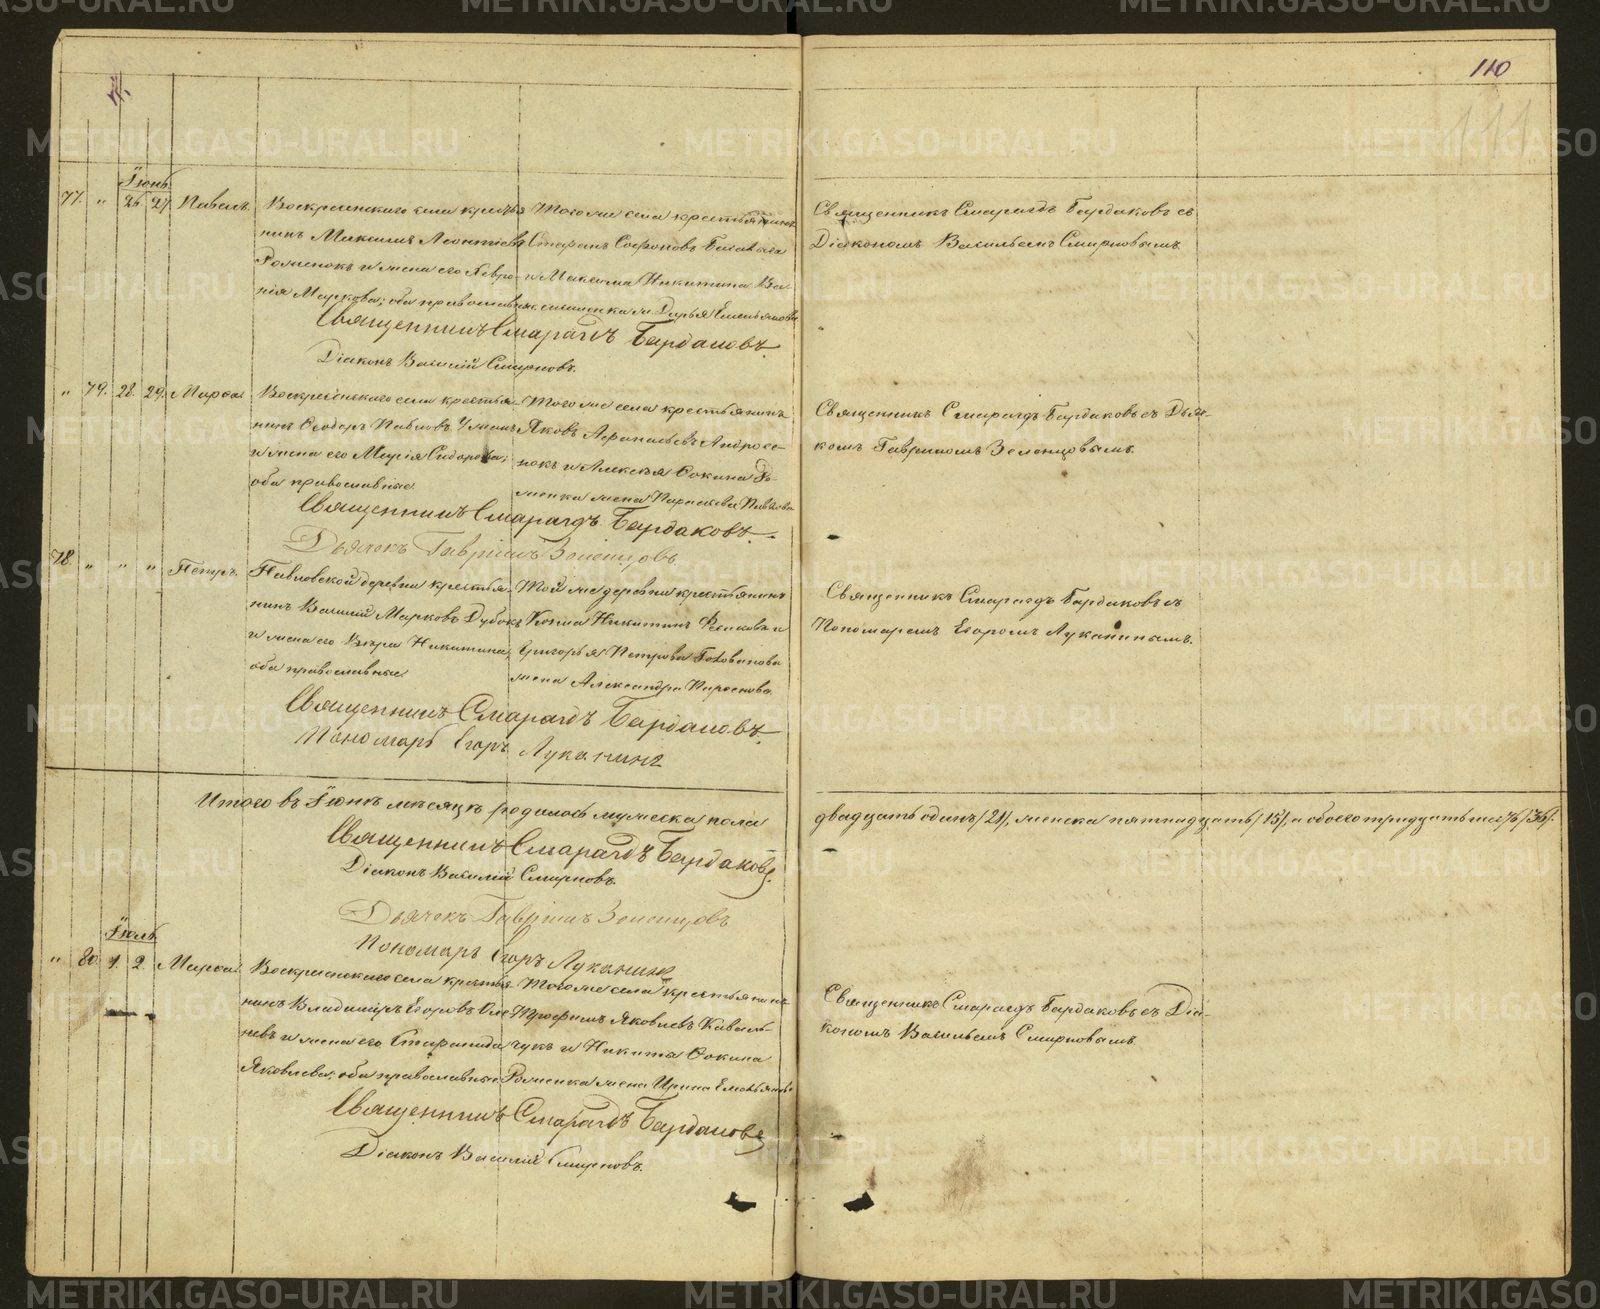 110
111
Іюнь
77. " 26 27 Павелъ.
Воскресенскаго села крестья-
нинъ Максимъ Леонтьевъ
Роменокъ и жена его Февро-
нія Маркова; оба православные.
Тогоже села крестьянинъ
Стефанъ Софоновъ
и Максима Никитина
жена Дарья Емельянова
Священникъ Смарагдъ Бардаковъ съ
Діакономъ Васильемъ Смирновымъ
Священникъ Смарагдъ Бардаковъ.
Діаконъ Василій Смирновъ.
" 79. 28. 29. Марѳа.
Воскресенскаго села крестья-
нинъ Ѳеодоръ Павловъ
и жена его Марія Сидорова;
оба православные.
Тогоже села крестьянинъ
Яковъ Аѳанасьевъ Андросе-
нокъ и Алексѣя Ѳокина Ро-
менка жена Параскева Павлова
Священникъ Смарагдъ Бардаковъ съ Дьяч-
комъ Гавріиломъ Зеленцовымъ.
Священникъ Смарагдъ Бардаковъ.
Дьячекъ Гавріилъ Зеленцовъ
78. " " " Петръ.
Павловской деревни крестья-
нинъ Василій Марковъ
и жена его Вѣра Никитина;
оба православные.
Той же деревни крестьянинъ
Козма Никитинъ и
Григорья Петрова Голованова
жена Александра
Священникъ Смарагдъ Бардаковъ съ
Пономаремъ Егоромъ Луканинымъ.
Священникъ Смарагдъ Бардаковъ.
Пономарь Егоръ Луканинъ
Итого въ Іюнѣ мѣсяцѣ родилось мужеска пола
двадцать одинъ /21/, женска пятнадцать /15/, а обоего тридцать шесть /36/.
Священникъ Смарагдъ Бардаковъ.
Діаконъ Василій Смирновъ.
Дьячекъ Гавріилъ Зеленцовъ
Пономарь Егоръ Луканинъ
Іюль
" 80. 1. 2. Марѳа.
Воскресенскаго села крестья-
нинъ Владиміръ Егоровъ
и жена его Стефанида
Яковлева; оба православные
Тогоже села крестьянинъ
Трофимъ Яковлевъ Коваль-
чукъ и Никиты Ѳокина
Роменка жена Ирина Емельянова
Священникъ Смарагдъ Бардаковъ съ Діа-
кономъ Васильемъ Смирновымъ
Священникъ Смарагдъ Бардаковъ
Діаконъ Василій Смирновъ.
METRIKI.GASO-URAL.RU